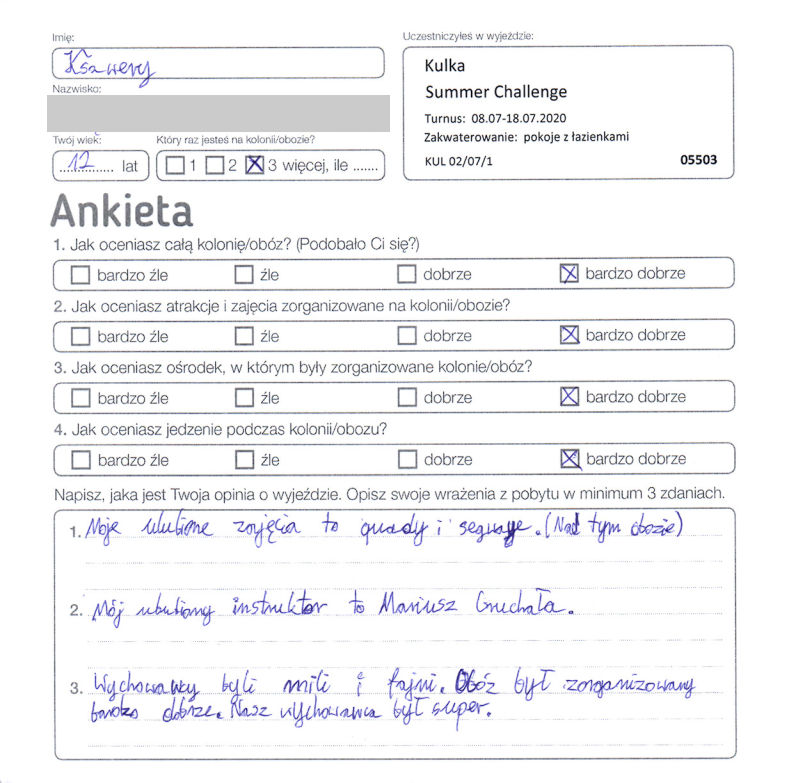 Imię:
Ksawery
Nazwisko:
Twój wiek:
12 lat
Który raz jesteś na kolonii/obozie?
1 2 3 więcej, ile .......
Uczestniczyłeś w wyjeździe:
Kulka
Summer Challenge
Turnus: 08.07-18.07.2020
Zakwaterowanie: pokoje z łazienkami
KUL 02/07/1 05503
Ankieta
1. Jak oceniasz całą kolonię/obóz? (Podobało Ci się?)
bardzo źle źle dobrze bardzo dobrze
2. Jak oceniasz atrakcje i zajęcia zorganizowane na kolonii/obozie?
bardzo źle źle dobrze bardzo dobrze
3. Jak oceniasz ośrodek, w którym były zorganizowane kolonie/obóz?
bardzo źle źle dobrze bardzo dobrze
4. Jak oceniasz jedzenie podczas kolonii/obozu?
bardzo źle źle dobrze bardzo dobrze
Napisz, jaka jest Twoja opinia o wyjeździe. Opisz swoje wrażenia z pobytu w minimum 3 zdaniach.
1. Moje ulubione zajęcia to quady i segwaye. (Nad tym obozie)
2. Mój ulubiony instruktor to Mariusz Gruchała.
3. Wychowawcy byli mili i fajni. Obóz był zorganizowany
bardzo dobrze. Nasz wychowawca był super.